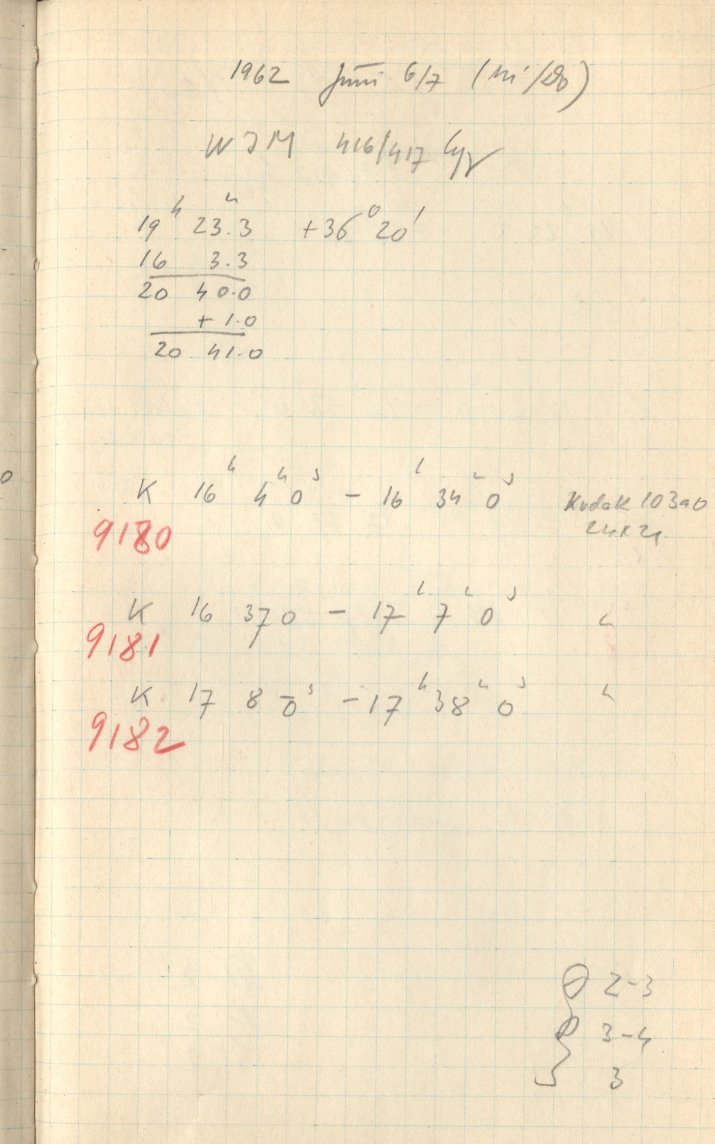 1962 Juni 6/7 (Mi/Do)
WJM 416/417 Cyg
19ʰ 23.3ᵐ +36° 20'
16 3.3
20 40.0
+ 1.0
20 41.0
K 16ʰ 4ᵐ 0ˢ - 16ʰ 34ᵐ 0ˢ Kodak 103a0
9180 24x24
K 16 37 0 - 17ʰ 7ᵐ 0ˢ "
9181
K 17 8 0ˢ - 17ʰ 38ᵐ 0ˢ "
9182
2-3
3-4
3